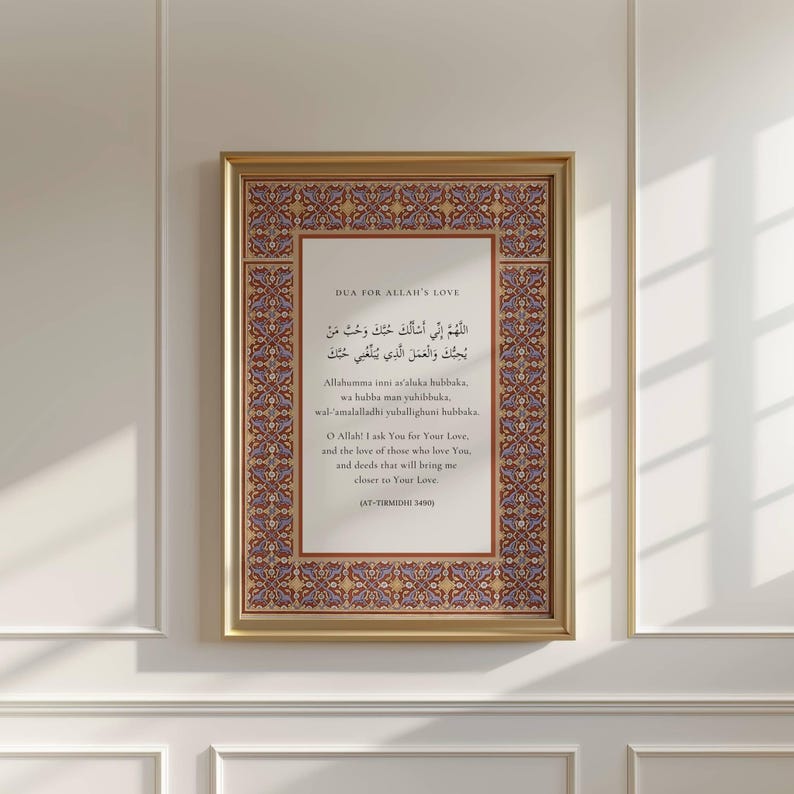 DUA FOR ALLAH'S LOVE
اللَّهُمَّ إِنِّي أَسْأَلُكَ حُبَّكَ وَحُبَّ مَنْ
يُحِبُّكَ وَالْعَمَلَ الَّذِي يُبَلِّغُنِي حُبَّكَ
Allahumma inni as'aluka hubbaka,
wa hubba man yuhibbuka,
wal-'amalalladhi yuballighuni hubbaka.
O Allah! I ask You for Your Love,
and the love of those who love You,
and deeds that will bring me
closer to Your Love.
(AT-TIRMIDHI 3490)